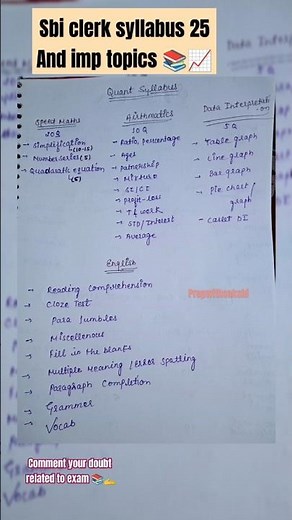 Sbi clerk syllabus 25
And imp topics 📚📈
Quant Syllabus
Speed Maths
20Q
→ Simplification
(10-15)
→ Number Series (5)
→ Quadratic equation
(5)
Airthmatics
10 Q
→ Ratio, Percentage
→ Ages
→ Partnership
→ Mixture
→ SI/CI
→ Profit-loss
→ T & work
→ STD/Interest
→ Average
Data Interpretati
5 Q
→ Table graph
→ Line graph
→ Bar graph
→ Pie chart/
graph
→ Caslet DI
English
→ Reading Comprehension
→ Cloze Test
→ Para Jumbles
→ Miscellenous
→ Fill in the blanks
→ Multiple Meaning / Error Spotting
→ Paragraph Completion
→ Grammer
→ Vocab
Comment your doubt
related to exam 📚✍️